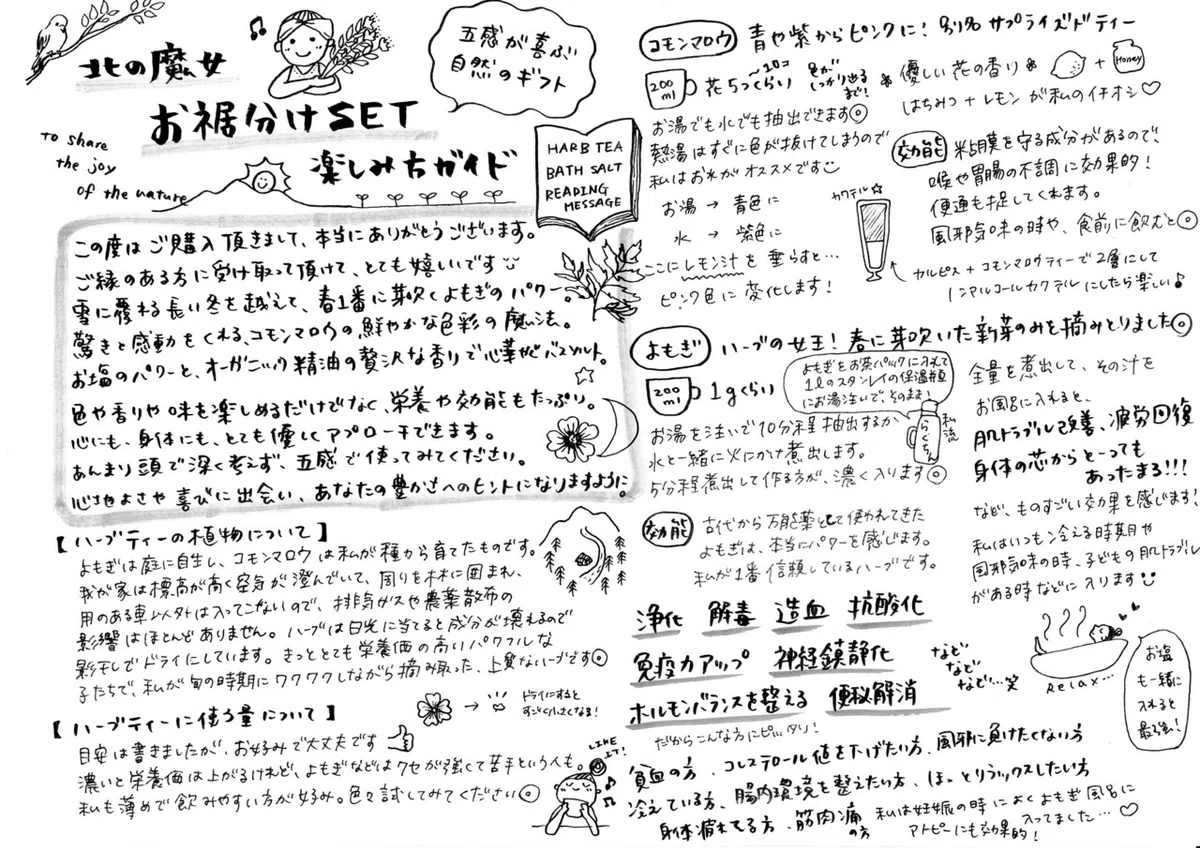 北の魔女
お裾分けSET
楽しみ方ガイド
to share
the joy
of the nature
五感が喜ぶ
自然のギフト
HARB TEA
BATH SALT
READING
MESSAGE
この度はご購入頂きまして、本当にありがとうございます。
ご縁のある方に受け取って頂けて、とても嬉しいです
雪に覆われる長い冬を越えて、春1番に芽吹くよもぎのパワー。
驚きと感動をくれる、コモンマロウの鮮やかな色彩の魔法。
お塩のパワーと、オーガニック精油の贅沢な香りで心華やぐバスソルト。
色や香りや味を楽しめるだけでなく、栄養や効能もたっぷり。
心にも、身体にも、とても優しくアプローチできます。
あんまり頭で深く考えず、五感で使ってみてください。
心地よさや喜びに出会い、あなたの豊かさへのヒントになりますように。
【ハーブティーの植物について】
よもぎは庭に自生し、コモンマロウは私が種から育てたものです。
我が家は標高が高く空気が澄んでいて、周りを木々に囲まれ、
用のある車以外は入ってこないので、排気ガスや農薬散布の
影響はほとんどありません。ハーブは日光に当てると成分が壊れるので
影干しでドライにしています。きっととても栄養価の高いパワフルな
子たちで、私が旬の時期にワクワクしながら摘み取った、上質なハーブです◎
【ハーブティーに使う量について】
ドライにすると
すごく小さくなる!
目安は書きましたが、お好みで大丈夫です
濃いと栄養価は上がるけれど、よもぎなどはクセが強くて苦手という人も。
私も薄めで飲みやすい方が好み。色々試してみてください◎
LIKE
IT!
コモンマロウ 青や紫からピンクに! 別名 サプライズドティー
200
ml
花5つくらい
〜10コ
色が
しっかり出る
まで!
お湯でも水でも抽出できます◎
熱湯はすぐに色が抜けてしまうので
私はお水がオススメです
お湯 → 青色に
水 → 紫色に
ここにレモン汁を垂らすと…
ピンク色に変化します!
優しい花の香り
Honey
はちみつ+レモンが私のイチオシ♡
効能 粘膜を守る成分があるので、
喉や胃腸の不調に効果的!
便通も促してくれます。
風邪気味の時や、食前に飲むと◎
カクテル☆
カルピス+コモンマロウティーで2層にして
ノンアルコールカクテルにしたら楽しい♪
よもぎ ハーブの女王! 春に芽吹いた新芽のみを摘みとりました◎
200
ml
1gくらい
よもぎをお茶パックに入れて
1ℓのスタンレイの保温瓶
にお湯注いで、そのまま!
らくちん
私流
お湯を注いで10分程抽出するか
水と一緒に火にかけ煮出します。
5分程煮出して作る方が、濃く入ります◎
効能 古代から万能薬として使われてきた
よもぎは、本当にパワーを感じます。
私が1番信頼しているハーブです。
浄化 解毒 造血 抗酸化
免疫力アップ 神経鎮静化
ホルモンバランスを整える 便秘解消
など
など
など…笑
全量を煮出して、その汁を
お風呂に入れると、
肌トラブル改善、疲労回復
身体の芯からとーっても
あったまる!!!
など、ものすごい効果を感じます!
私はいつも冷える時期や
風邪気味の時、子どもの肌トラブル
がある時などに入ります
Relax…
お塩
も一緒に
入れると
最強!
だからこんな方にピッタリ!
貧血の方、コレステロール値を下げたい方、風邪に負けたくない方
冷えている方、腸内環境を整えたい方、ほっとリラックスしたい方
身体疲れてる方、筋肉痛の方
私は妊娠の時によくよもぎ風呂に
入ってました…♡
アトピーにも効果的!